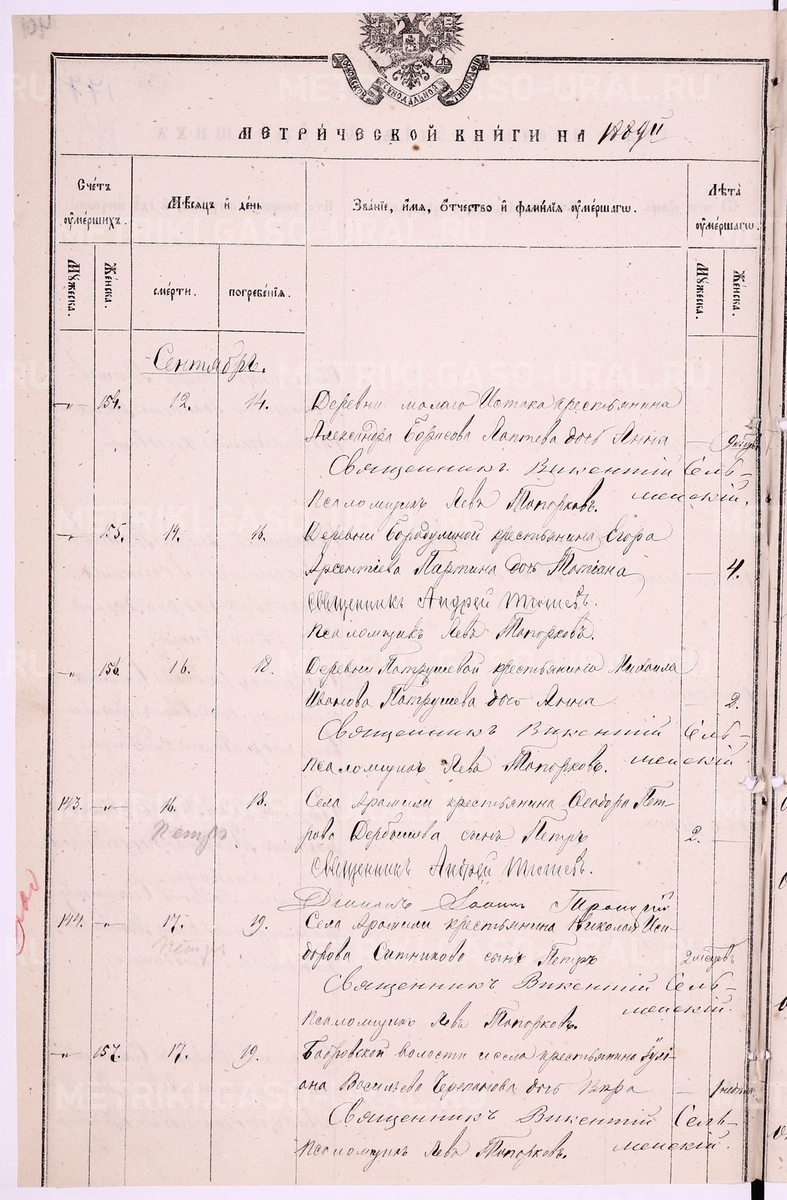 МОСКОВСКОЙ СѴНОДАЛЬНОЙ ТИПОГРАФІИ
МЕТРИ́ЧЕСКОЙ КНИ́ГИ НА 1889й
Сче́тъ ᲂу҆ме́ршихъ.
Мѣ́сяцъ и҆ де́нь
Зва́нїе, и҆́мѧ, ѻ҆́тчество и҆ фами́лїѧ ᲂу҆ме́ршагѡ.
Лѣта̀ ᲂу҆ме́ршагѡ.
Мꙋ́жеска.
Же́нска.
сме́рти.
погребе́нїѧ.
Мꙋ́жеска.
Же́нска.
Сентябрь.
—„— 154. 12. 14. Деревни малаго Истока крестьянина
Александра Борисова Лаптева дочь Анна —
Священникъ Викентій Сель-
менскій.
Псаломщикъ Левъ Топорковъ.
—„— 155. 14. 16. Деревни Бородулиной крестьянина Егора
Арсентіева Партина дочь Татіана — 4.
Священникъ Андрей
Псаломщикъ Левъ Топорковъ.
—„— 156. 16. 18. Деревни Патрушевой крестьянина Михаила
Иванова Патрушева дочь Анна — 2.
Священникъ Викентій Сель-
менскій.
Псаломщикъ Левъ Топорковъ.
143. —„— 16. 18. Села Арамили крестьянина Ѳеодора Пет-
Петръ
рова Дербышева сынъ Петръ 2. —
Священникъ Андрей
Діаконъ Іоаннъ Троицкій
144. —„— 17. 19. Села Арамили крестьянина Николая Иси-
Петръ
дорова Ситникова сынъ Петръ
Священникъ Викентій Сель-
менскій.
Псаломщикъ Левъ Топорковъ.
—„— 157. 17. 19. Бобровской волости и села крестьянина Іулі-
ана Васильева Черепанова дочь Вѣра —
Священникъ Викентій Сель-
менскій.
Псаломщикъ Левъ Топорковъ.
METRIKI.GASO-URAL.RU